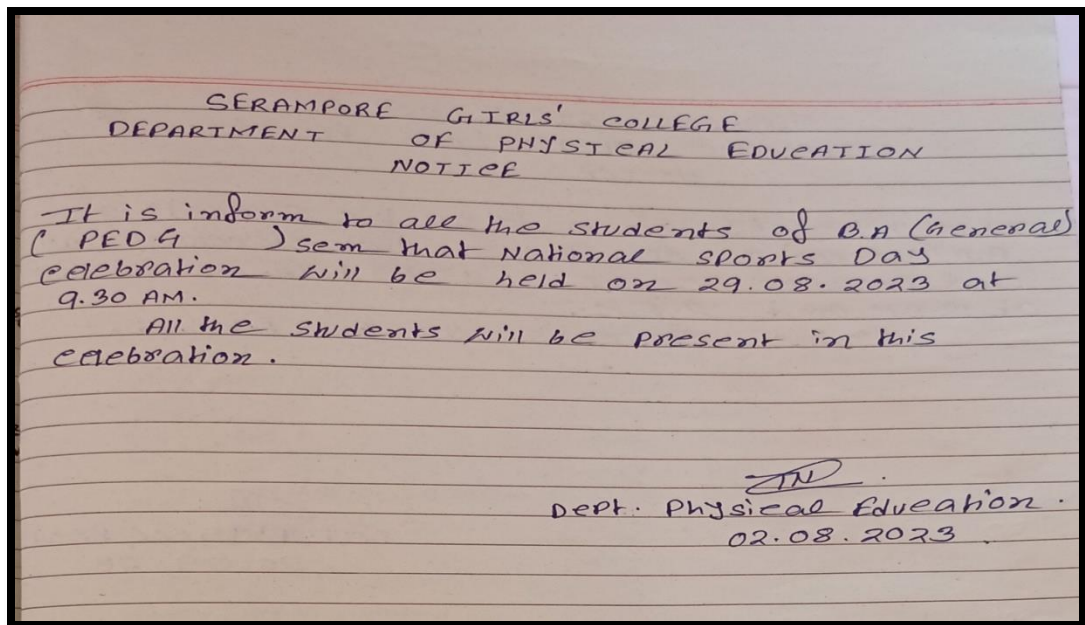 SERAMPORE GIRLS' COLLEGE
DEPARTMENT OF PHYSICAL EDUCATION
NOTICE
It is inform to all the students of B.A (General)
( PEDG ) sem that National Sports Day
celebration will be held on 29.08.2023 at
9.30 AM.
All the students will be present in this
celebration.
Dept. Physical Education.
02.08.2023